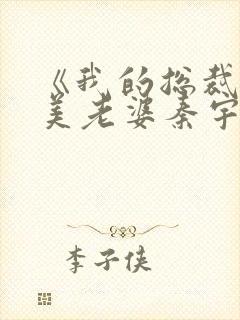 《我的总裁
美老婆秦宇
李子侠